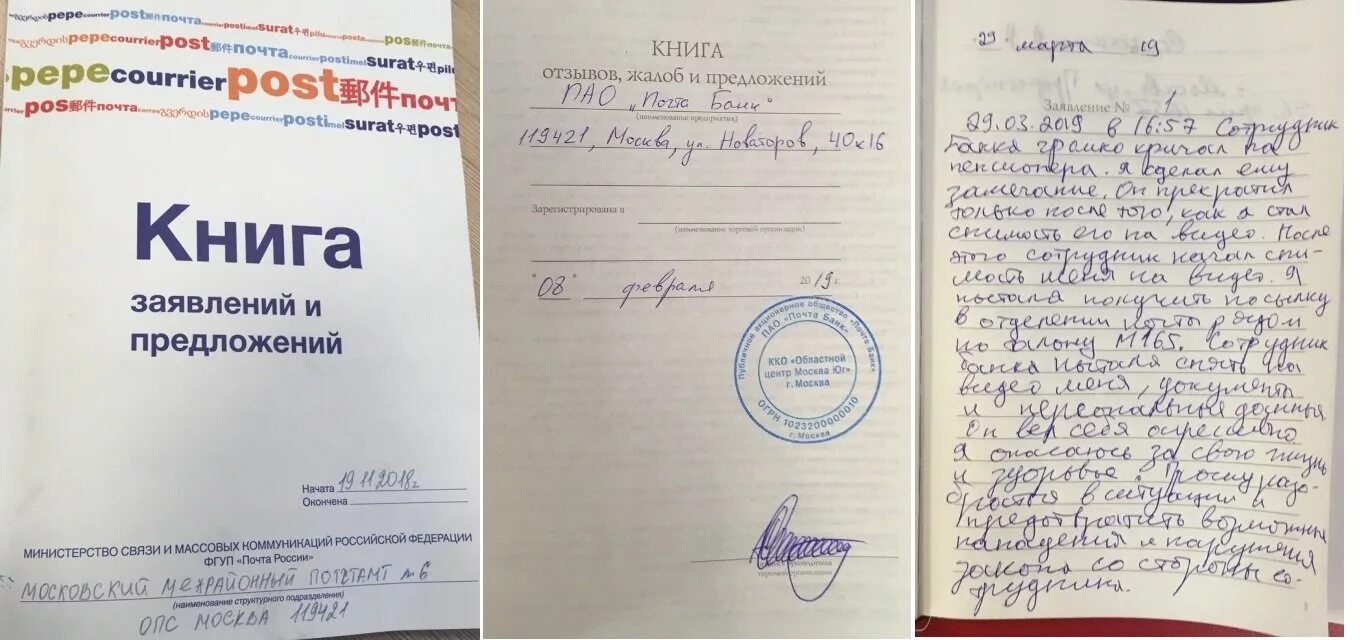 pepe courrier post郵件почта
pepe courrier post郵件почта
surat우편
pepe courrier post郵件почт
pos郵件почта
pepe courrier postimel surat우편post
Книга
заявлений и
предложений
Начата 19.11.2018г
Окончена
МИНИСТЕРСТВО СВЯЗИ И МАССОВЫХ КОММУНИКАЦИЙ РОССИЙСКОЙ ФЕДЕРАЦИИ
ФГУП «Почта России»
МОСКОВСКИЙ МЕЖРАЙОННЫЙ ПОЧТАМТ №6
(наименование структурного подразделения)
ОПС МОСКВА 119421
КНИГА
отзывов, жалоб и предложений
ПАО „Почта Банк"
(наименование предприятия)
119421, Москва, ул. Новаторов, 40к16
Зарегистрирована в
(наименование торговой организации)
"08" февраля 2019г.
Публичное акционерное общество «Почта Банк»
ПАО «Почта Банк»
ККО «Областной
центр Москва Юг»
г. Москва
ОГРН 1023200000010
г. Москва
руководителя
торговой организации
29 марта 19
Заявление № 1
29.03.2019 в 16:57 Сотрудник
банка громко кричал на
пенсионера. Я сделал ему
замечание. Он прекратил
только после того, как я стал
снимость его на видео. После
этого сотрудник начал сни-
мость меня на видео. Я
пытался получить посылку
в отделении почты рядом
по талону М165. Сотрудник
банка пытался снять на
видео меня, документы
и персональные данные
Он вёл себя агрессивно
Я опасаюсь за свою жизнь
и здоровье. Прошу разо-
браться в ситуации и
предотвратить возможные
нападения и нарушения
закона со стороны со-
трудника.